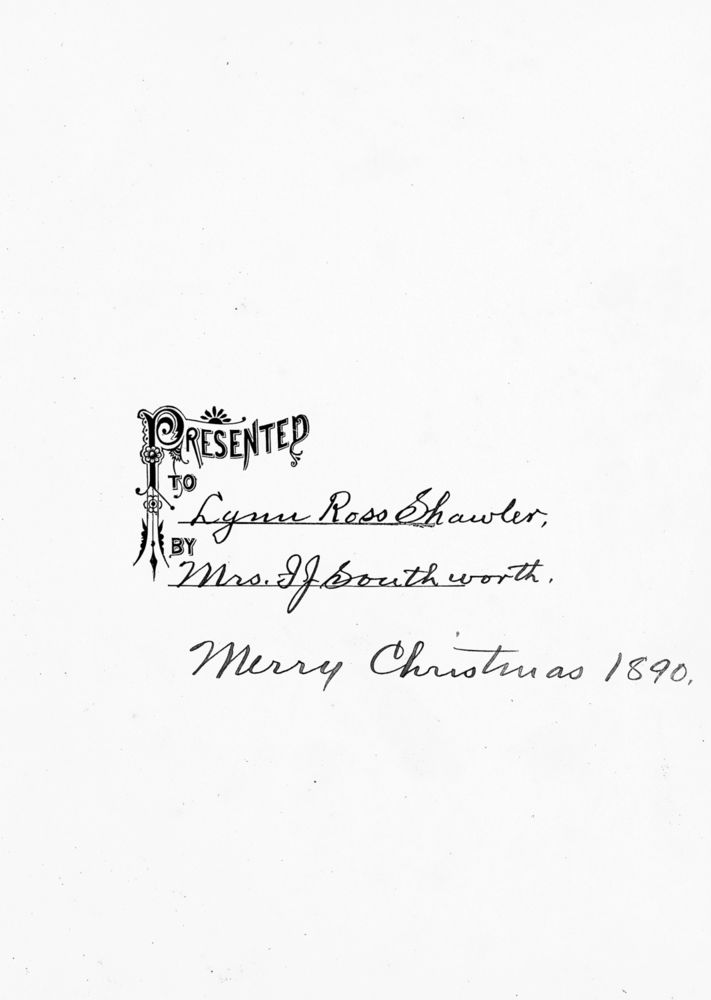 PRESENTED
TO
Lynn Ross Shawler,
BY
Mrs. I J Southworth.
Merry Christmas 1890.